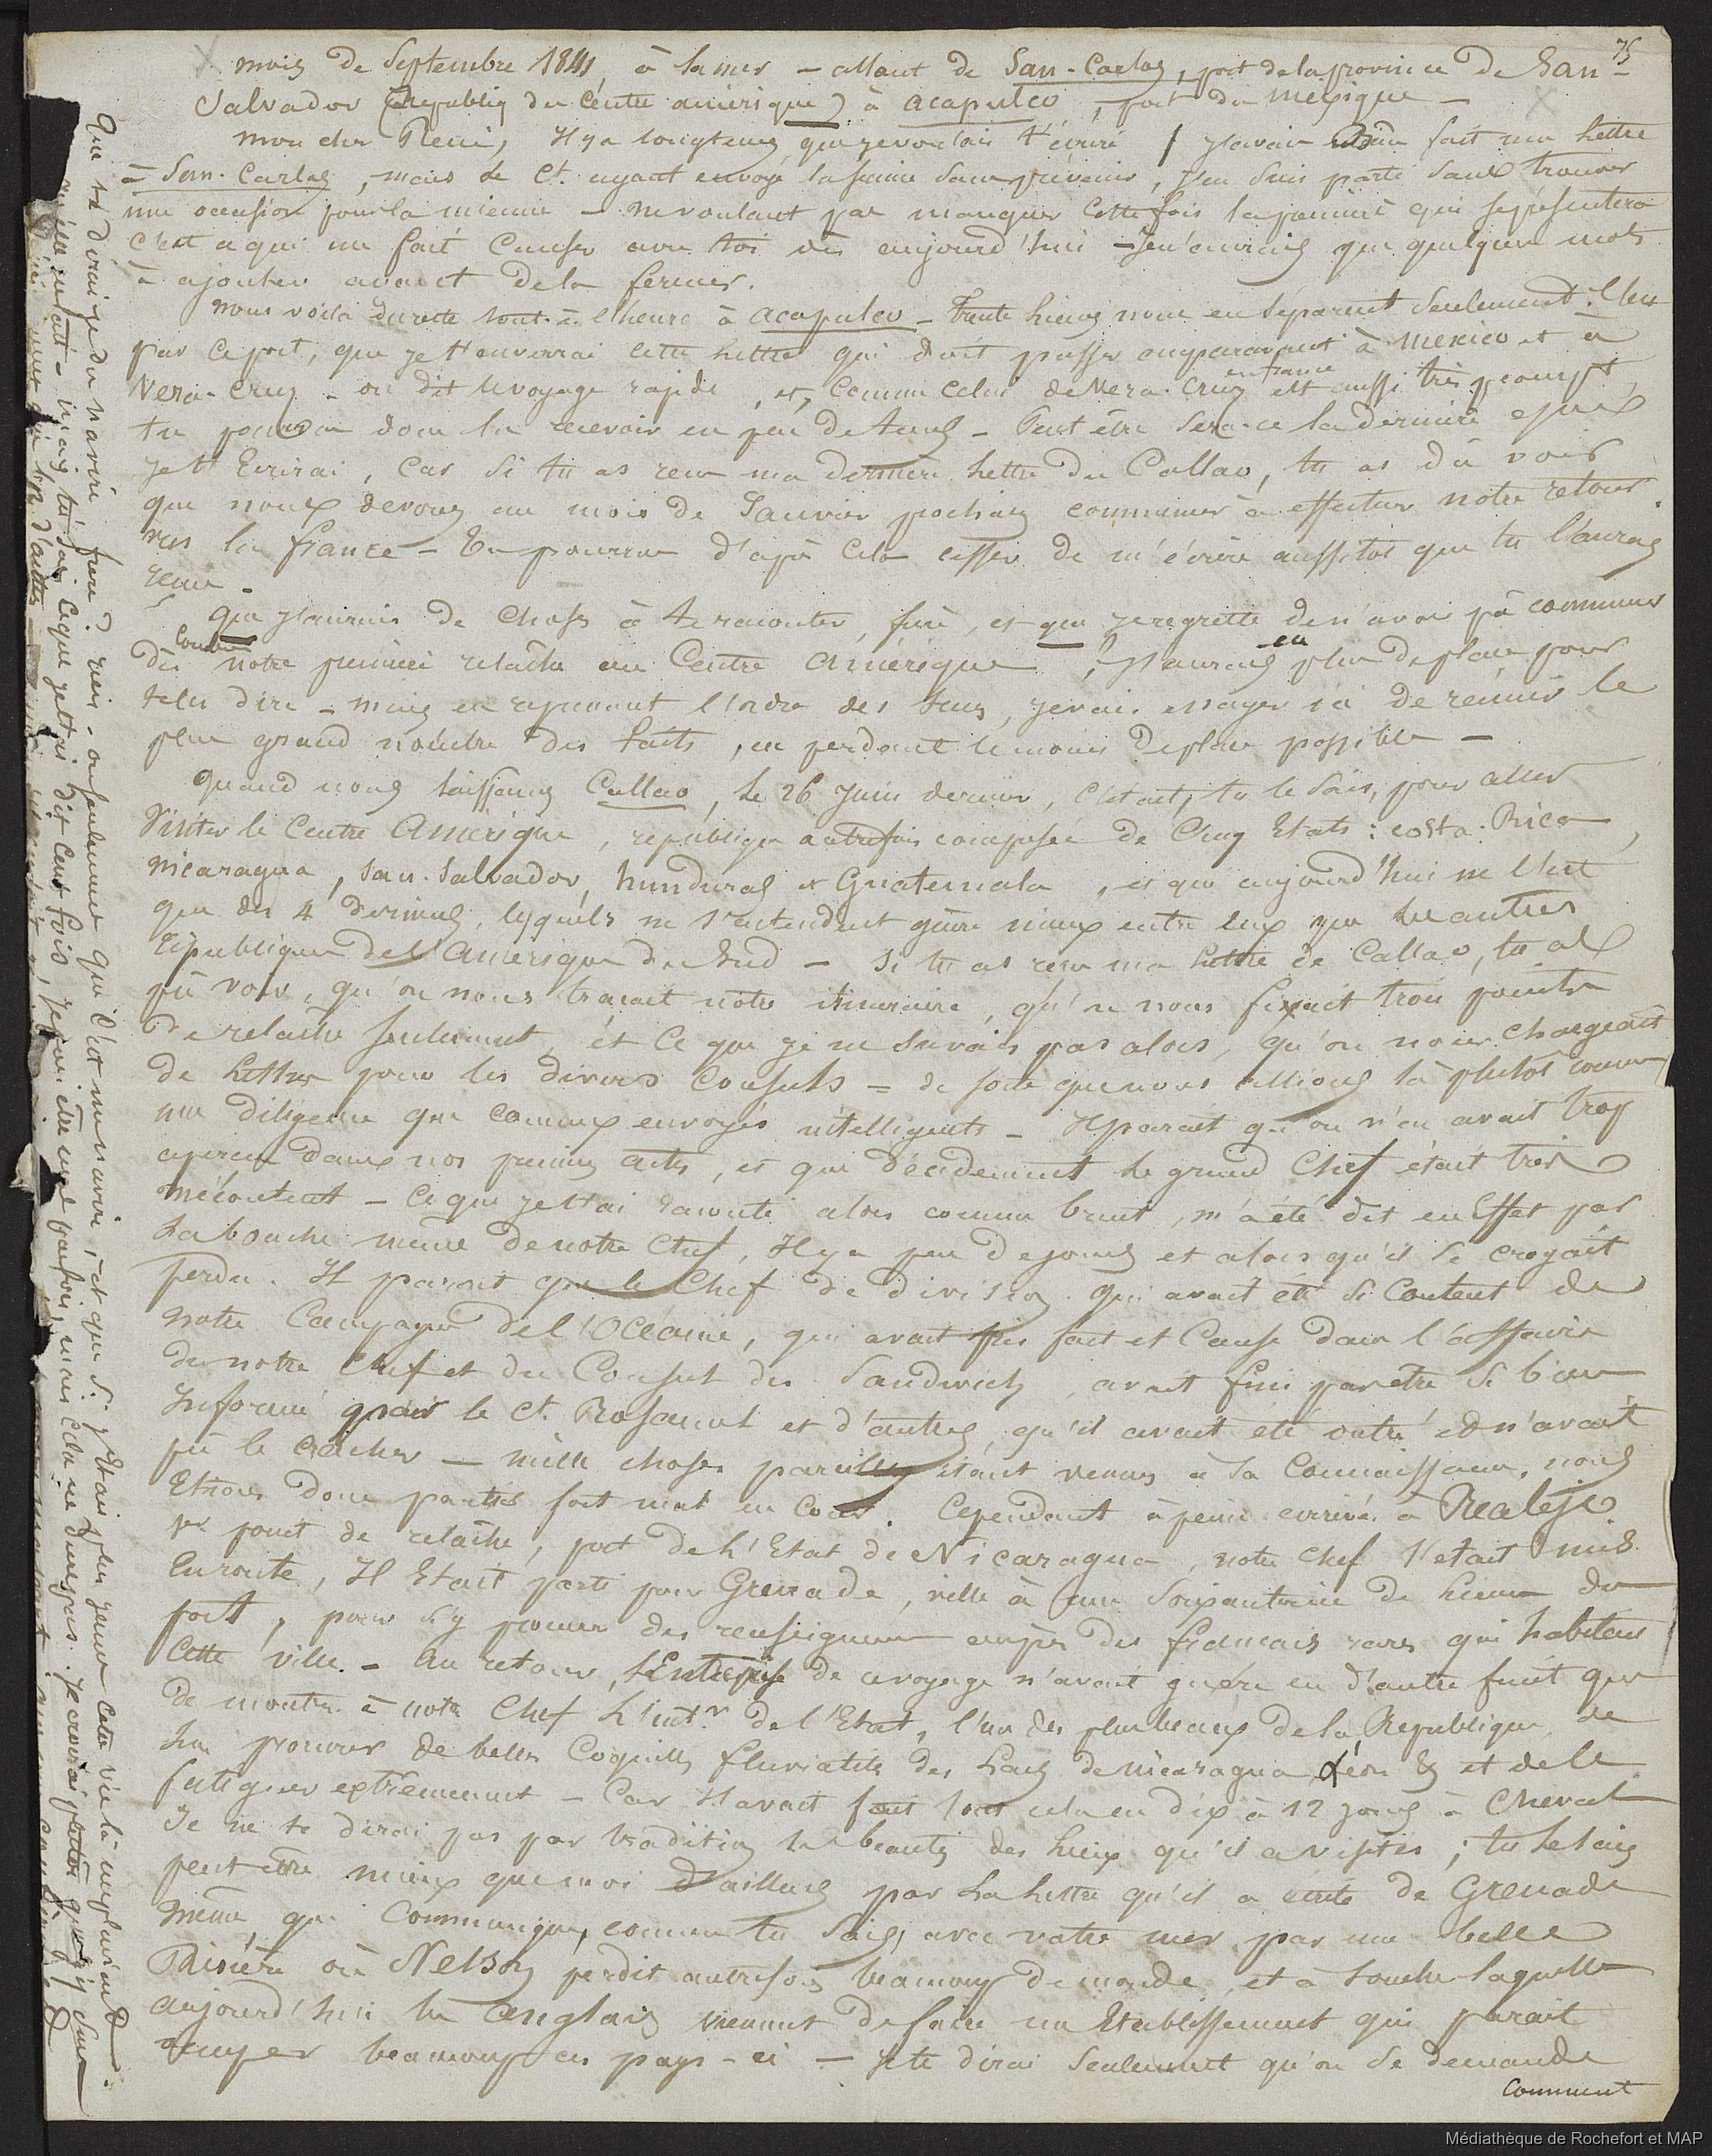 75
mois de Septembre 1841, à la mer – allant de San-Carlos, port de la province de San-
Salvador (Republiq du Centre amérique) à acapulco, port du mexique –
mon cher René, Il y a longtems que je voulais t'écrire / J'avais fait une lettre
à San-Carlos, mais le Ct. ayant envoyé la sienne sans prévenir, j'en suis parti sans trouver
une occasion pour la mienne – ne voulant pas manquer cette fois la première qui se présentera
c'est ce qui me fait causer avec toi dès aujourd'hui – Je n'aurais que quelques mots
à ajouter avant de la fermer.
Nous voilà du reste tout-à-l'heure à acapulco – trente lieues nous en séparent seulement. C'est
par ce port, que je t'enverrai cette lettre qui doit passer auparavant à mexico et à
Vera-Cruz – on dit le voyage rapide, et, comme celui de Vera-Cruz en france est aussi très prompt,
tu pourras donc la recevoir en peu de tems – Peut être sera-ce la dernière que
je t'Ecrirai, car si tu as reçu ma dernière lettre du Callao, tu as dû voir
que nous devons au mois de Janvier prochain commencer à effectuer notre retour
vers la france – tu pourras d'après cela cesser de m'écrire aussitôt que tu l'auras
reçue –
Que j'aurais de choses à te raconter, frère, et que je regrette de n'avoir pû commencer
dès notre première relâche au Centre Amérique, J'aurais eu plus de place pour
te les dire – mais en reprenant l'ordre des tems, je vais essayer ici de réunir le
plus grand nombre des faits, en perdant le moins de place possible –
Quand nous laissâmes Callao, le 26 Juin dernier, c'était, tu le sais, pour aller
Visiter le Centre Amérique, république autrefois composée de Cinq Etats : costa-Rica,
Nicaragua, San-Salvador, hunduras et Guatemala, et qui aujourd'hui ne l'est
que des 4 derniers, lesquels ne s'entendent guère mieux entre eux que les autres
républiques de l'Amérique du Sud – Si tu as reçu ma lettre de Callao, tu as
pû voir, qu'on nous traçait notre itineraire, qu'on nous fixait trois points
de relâche seulement, et ce que je ne savais pas alors, qu'on nous chargeait
de lettres pour les divers Consuls – de sorte que nous allions là plutôt comme
une diligence que comme envoyés intelligents – Il parait qu'on n'en avait trop
aperçu dans nos premiers actes, et que décidement le grand Chef était très
mécontent – Ce que je t'ai raconté alors comme bruit, m'a été dit en Effet par
la bouche même de notre Chef, Il y a peu de jours et alors qu'il se croyait
perdu. Il parait que le Chef de division qui avait été si content de
notre Campagne de l'Océanie, qui avait pris fait et Cause dans l'affaire
de notre Chef et du Consul des Sandwich, avait fini par être si bien
Informé par le Ct. Rosamel et d'autres, qu'il avait été outré et n'avait
pû le cacher – mille choses pareilles étant venues à sa Connaissance, nous
Etions donc partis fort mal en Cour. Cependant à peine arrivés à Realejo
1er point de relâche, port de l'Etat de Nicaragua, notre Chef s'était mis
En route, Il Etait parti pour Grenade, ville à une soixantaine de lieues du
port, pour s'y procurer des renseignements auprès des français rares qui habitent
Cette ville. – Au retour, l'Entreprise de ce voyage n'avait guère eu d'autre fruit que
de montrer à notre Chef l'intr. de l'Etat, l'un des plus beaux de la Republique, de
lui procurer de belles Coquilles fluviatiles des lacs de nicaragua, Léon & et de le
fatiguer extrêmement – Car Il avait fait tout cela en dix à 12 jours à Cheval
Je ne te dirai pas par tradition la beauté des lieux qu'il a visités ; tu le sais
peut-être mieux que moi d'ailleurs par la lettre qu'il a écrite de Grenade
même, qui communique, comme tu sais, avec votre mer par une belle
Rivière où Nelson perdit autrefois beaucoup de monde, et à laquelle
aujourd'hui les anglais viennent de faire un Etablissement qui parait
occuper beaucoup ces pays-ci – Je te dirai seulement qu'on se demande
comment
Que te dirai-je du navire frère ? rien – seulement que c'est mon navire, et que si j'étais plus jeune cette vie là me plairait
mais tu sais ce que je t'ai dit cent fois, Je puis être mal parfois, mais cela ne dure pas.
Médiathèque de Rochefort et MAP